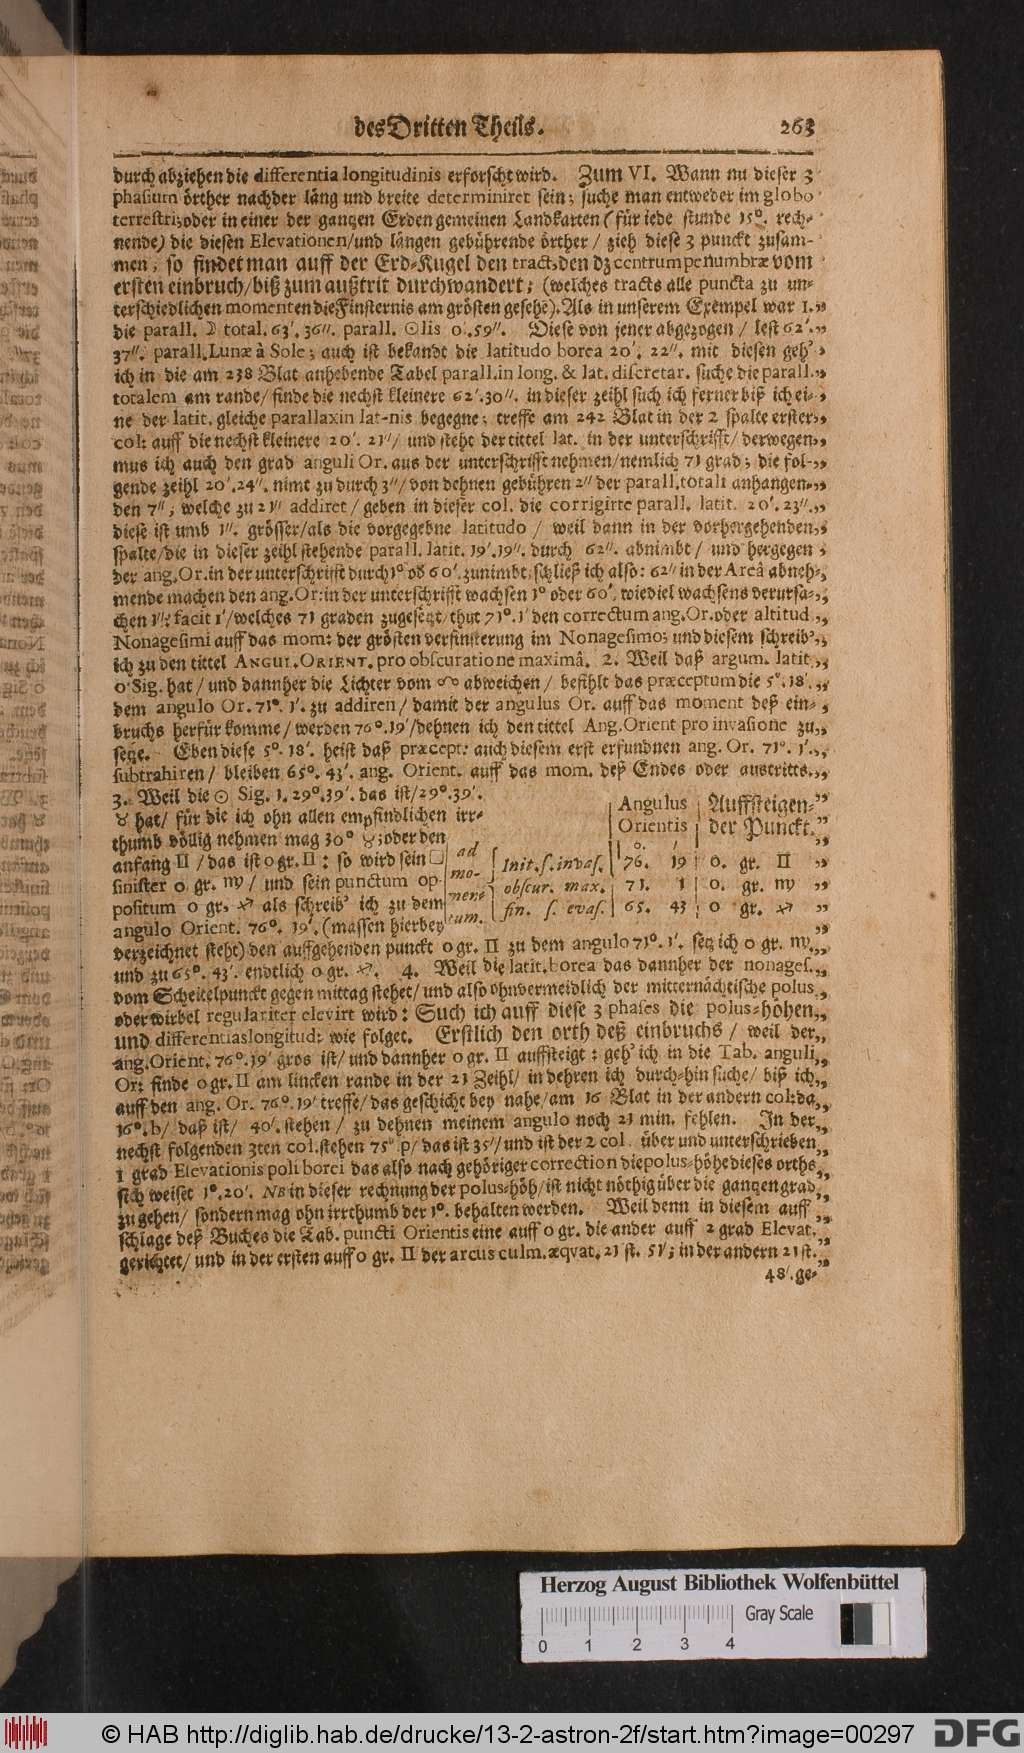 des Dritten Theils. 263
durch abziehen die differentia longitudinis erforscht wird. Zum VI. Wann nu dieser 3
phasium örther nach der läng und breite determiniret sein; suche man entweder im globo
terrestri; oder in einer der gantzen Erden gemeinen Landkarten (für iede stunde 15°. rech-
nende) die diesen Elevationen/ und längen gebührende örther / zieh diese 3 punckt zusam-
men, so findet man auff der Erd-Kugel den tract, den dz centrum penumbræ vom
ersten einbruch/ biß zum außtrit durchwandert; (welches tracts alle puncta zu un-
terschiedlichen momenten die Finsternis am grösten gesehē). Als in unserem Exempel war 1.„
die parall. ☽ total. 63′. 36″. parall. ☉lis 0′. 59″. Diese von jener abgezogen / lest 62′.„
37″. parall. Lunæ à Sole; auch ist bekandt die latitudo borea 20′. 22″. mit diesen geh'„
ich in die am 238 Blat anhebende Tabel parall. in long. & lat. discretar. suche die parall.„
totalem am rande/ finde die nechst kleinere 62′. 30″. in dieser zeihl such ich ferner biß ich ei-„
ne der latit. gleiche parallaxin lat-nis begegne; treffe am 242 Blat in der 2 spalte erster„
col: auff die nechst kleinere 20′. 21″/ und steht der tittel lat. in der unterschrifft/ derwegen„
mus ich auch den grad anguli Or. aus der unterschrifft nehmen/ nemlich 71 grad; die fol-„
gende zeihl 20′. 24″. nimt zu durch 3″/ von dehnen gebühren 2″ der parall. totali anhangen-„
den 7″; welche zu 21″ addiret / geben in dieser col. die corrigirte parall. latit. 20′. 23″.„
diese ist umb 1″. grösser/ als die vorgegebne latitudo / weil dann in der vorhergehenden„
spalte/ die in dieser zeihl stehende parall. latit. 19′. 19″. durch 62″. abnimbt / und hergegen „
der ang. Or. in der unterschrifft durch 1° od 60′. zunimbt; schließ ich also: 62″ in der Areâ abneh-„
mende machen den ang. Or: in der unterschrifft wachsen 1° oder 60′, wieviel wachsens verursa-„
chen 1″: facit 1′/ welches 71 graden zugesetzt/ thut 71°. 1′ den correctum ang. Or. oder altitud.„
Nonagesimi auff das mom: der grösten verfinsterung im Nonagesimo; und diesem schreib'„
ich zu den tittel ANGUL. ORIENT. pro obscuratione maximâ. 2. Weil daß argum. latit.„
0 Sig. hat / und dannher die Lichter vom ☍ abweichen / befihlt das præceptum die 5°. 18′.„
dem angulo Or. 71°. 1′. zu addiren / damit der angulus Or. auff das moment deß ein-„
bruchs herfür komme / werden 76°. 19′/ dehnen ich den tittel Ang. Orient pro invasione zu„
setze. Eben diese 5°. 18′. heist daß præcept: auch diesem erst erfundnen ang. Or. 71°. 1′.„
subtrahiren / bleiben 65°. 43′. ang. Orient. auff das mom. deß Endes oder austritts.„
3. Weil die ☉ Sig. 1. 29°. 39′. das ist/ 29°. 39′.
♉ hat/ für die ich ohn allen empfindlichen irr-
thumb völlig nehmen mag 30° ♉; oder den
anfang ♊ / das ist 0 gr. ♊: so wird sein □
sinister 0. gr. ♍ / und sein punctum op-
positum 0 gr. ♐ als schreib' ich zu dem
angulo Orient. 76°. 19′. (massen hierbey
ad mo- ment tum.
Angulus Orientis | Auffsteigen- der Punckt.„
° ′
Init. s. invas. | 76. 19 | 0. gr. ♊ „
obscur. max. | 71. 1 | 0. gr. ♍ „
fin. s. evas. | 65. 43 | 0 gr. ♐ „
verzeichnet steht) den auffgehenden punckt 0 gr. ♊ zu dem angulo 71°. 1′. setz ich 0 gr. ♍.„
und zu 65°. 43′. endtlich 0 gr. ♐. 4. Weil die latit. borea das dannher der nonages.„
vom Scheitelpunckt gegen mittag stehet/ und also ohnvermeidlich der mitternächtische polus„
oder wirbel regulariter elevirt wird: Such ich auff diese 3 phases die polus-höhen„
und differentias longitud: wie folget. Erstlich den orth deß einbruchs / weil der„
ang. Orient. 76°. 19′ gros ist/ und dannher 0 gr. ♊ auffsteigt: geh' ich in die Tab. anguli„
Or: finde 0 gr. ♊ am lincken rande in der 21 Zeihl/ in dehren ich durch-hin suche/ biß ich„
auff den ang. Or. 76°. 19′ treffe/ das geschicht bey nahe/ am 16 Blat in der andern col: da„
16°. b/ daß ist/ 40′. stehen / zu dehnen meinem angulo noch 21 min. fehlen. In der„
nechst folgenden 3ten col. stehen 75° p/ das ist 35″/ und ist der 2 col. über und unterschrieben„
1 grad Elevationis poli borei das also nach gehöriger correction die polus-höhe dieses orths„
sich weiset 1°. 20′. NB in dieser rechnung der polus-höh/ ist nicht nöthig über die gantzen grad„
zu gehen/ sondern mag ohn irrthumb der 1°. behalten werden. Weil denn in diesem auff„
schlage deß Buches die Tab. puncti Orientis eine auff 0 gr. die ander auff 2 grad Elevat.„
gerichtet/ und in der ersten auff 0 gr. ♊ der arcus culm. æqvat. 21 st. 51′; in der andern 21 st.„
48′. ge-
Herzog August Bibliothek Wolfenbüttel
Gray Scale
0 1 2 3 4
© HAB http://diglib.hab.de/drucke/13-2-astron-2f/start.htm?image=00297
DFG